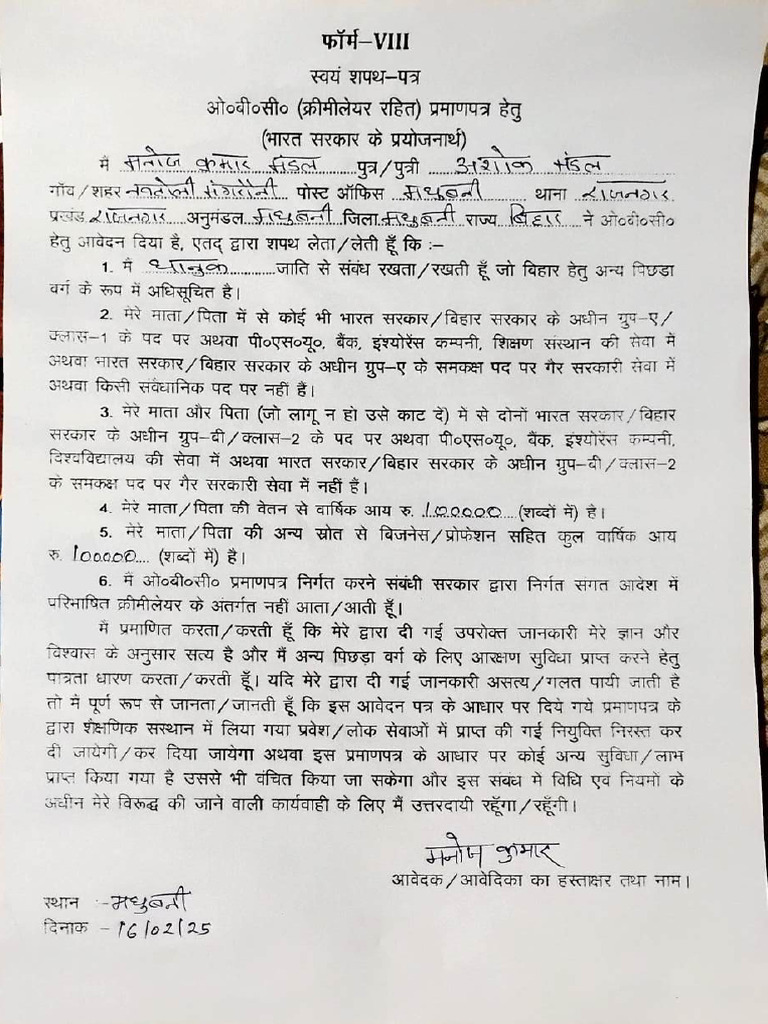 फॉर्म-VIII
स्वयं शपथ-पत्र
ओ०बी०सी० (क्रीमीलेयर रहित) प्रमाणपत्र हेतु
(भारत सरकार के प्रयोजनार्थ)
मैं मनोज कुमार मंडल पुत्र/पुत्री अशोक मंडल
गाँव/शहर मंगरौनी पोस्ट ऑफिस मधुबनी थाना राजनगर
प्रखंड राजनगर अनुमंडल मधुबनी जिला मधुबनी राज्य बिहार ने ओ०बी०सी०
हेतु आवेदन दिया है, एतद् द्वारा शपथ लेता/लेती हूँ कि :-
1. मैं धानुक जाति से संबंध रखता/रखती हूँ जो बिहार हेतु अन्य पिछड़ा
वर्ग के रूप में अधिसूचित है।
2. मेरे माता/पिता में से कोई भी भारत सरकार/बिहार सरकार के अधीन ग्रुप-ए/
क्लास-1 के पद पर अथवा पी०एस०यू०, बैंक, इंश्योरेंस कम्पनी, शिक्षण संस्थान की सेवा में
अथवा भारत सरकार/बिहार सरकार के अधीन ग्रुप-ए के समकक्ष पद पर गैर सरकारी सेवा में
अथवा किसी संवैधानिक पद पर नहीं हैं।
3. मेरे माता और पिता (जो लागू न हो उसे काट दें) में से दोनों भारत सरकार/बिहार
सरकार के अधीन ग्रुप-बी/क्लास-2 के पद पर अथवा पी०एस०यू०, बैंक, इंश्योरेंस कम्पनी,
विश्वविद्यालय की सेवा में अथवा भारत सरकार/बिहार सरकार के अधीन ग्रुप-बी/क्लास-2
के समकक्ष पद पर गैर सरकारी सेवा में नहीं हैं।
4. मेरे माता/पिता की वेतन से वार्षिक आय रु. 100000 (शब्दों में) है।
5. मेरे माता/पिता की अन्य स्रोत से बिजनेस/प्रोफेशन सहित कुल वार्षिक आय
रु. 100000 (शब्दों में) है।
6. मैं ओ०बी०सी० प्रमाणपत्र निर्गत करने संबंधी सरकार द्वारा निर्गत संगत आदेश में
परिभाषित क्रीमीलेयर के अंतर्गत नहीं आता/आती हूँ।
मैं प्रमाणित करता/करती हूँ कि मेरे द्वारा दी गई उपरोक्त जानकारी मेरे ज्ञान और
विश्वास के अनुसार सत्य है और मैं अन्य पिछड़ा वर्ग के लिए आरक्षण सुविधा प्राप्त करने हेतु
पात्रता धारण करता/करती हूँ। यदि मेरे द्वारा दी गई जानकारी असत्य/गलत पायी जाती है
तो मैं पूर्ण रूप से जानता/जानती हूँ कि इस आवेदन पत्र के आधार पर दिये गये प्रमाणपत्र के
द्वारा शैक्षणिक संस्थान में लिया गया प्रवेश/लोक सेवाओं में प्राप्त की गई नियुक्ति निरस्त कर
दी जायेगी/कर दिया जायेगा अथवा इस प्रमाणपत्र के आधार पर कोई अन्य सुविधा/लाभ
प्राप्त किया गया है उससे भी वंचित किया जा सकेगा और इस संबंध में विधि एवं नियमों के
अधीन मेरे विरूद्ध की जाने वाली कार्यवाही के लिए मैं उत्तरदायी रहूँगा/रहूँगी।
मनोज कुमार
आवेदक/आवेदिका का हस्ताक्षर तथा नाम।
स्थान :- मधुबनी
दिनांक - 16/02/25